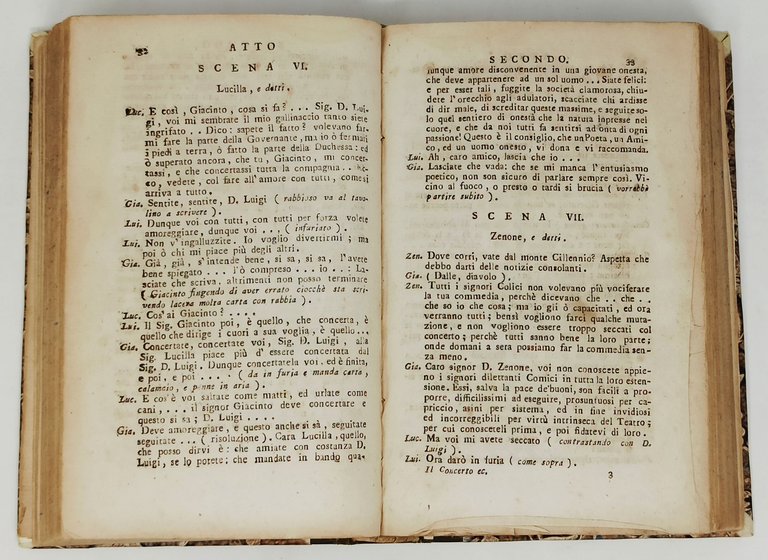 32
ATTO
SCENA VI.
Lucilla, e detti.
Luc. E così, Giacinto, cosa si fa? . . . Sig. D. Lui-
gi, voi mi sembrate il mio gallinaccio tanto siete
ingrifato . . Dico: sapete il fatto? volevano far-
mi fare la parte della Governante, ma io ò fermati
i piedi a terra, ò fatto la parte della Duchessa: ed
ò superato ancora, che tu, Giacinto, mi concer-
tassi, e che concertassi tutta la compagnia . .
co, vedete, col fare all'amore con tutti, come si
arriva a tutto.
Gia. Sentite, sentite, D. Luigi ( rabbioso va al tavo-
lino a scrivere ).
Lui. Dunque voi con tutti, con tutti per forza volete
amoreggiare, dunque voi . . . ( infuriato ).
Lui. Non v'ingalluzzite. Io voglio divertirmi; ma
poi ò chi mi piace più degli altri.
Gia. Già, già, s'intende bene, si sa, si sa, l'avete
bene spiegato . . . l'ò compreso . . . io . . : La-
sciate che scriva, altrimenti non posso terminare
( Giacinto fingendo di aver errato ciocchè sta scri-
vendo lacera molta carta con rabbia ).
Luc. Cos'ai Giacinto? . . . .
Lui. Il Sig. Giacinto poi, è quello, che concerta, è
quello che dirige i cuori a sua voglia, è quello...
Gia. Concertate, concertate voi, Sig. D. Luigi, alla
Sig. Lucilla piace più d'essere concertata dal
Sig. D. Luigi. Dunque concertatela voi, ed è finita,
e poi, e poi . . . . ( da in furia e manda carta,
calamaio, e penne in aria ).
Luc. E cos'è voi saltate come matti, ed urlate come
cani, . . . il signor Giacinto deve concertare e
questo si sa; D. Luigi . . . .
Gia. Deve amoreggiare, e questo anche si sà, seguitate
seguitate . . . ( risoluzione ). Cara Lucilla, quello,
che posso dirvi è: che amiate con costanza D.
Luigi, se lo potete; che mandate in bando qua-
SECONDO.
33
lunque amore disconvenente in una giovane onesta,
che deve appartenere ad un sol uomo . . . Siate felici:
e per esser tali, fuggite la società clamorosa, chiu-
dere l'orecchio agli adulatori, scacciate chi ardisse
di dir male, di screditar queste massime, e seguite so-
lo quel sentiero di onestà che la natura impresse nel
cuore, e che da noi tutti fa sentirsi ad onta di ogni
passione! Questo è il consiglio, che un Poeta, un Ami-
co, ed un uomo onesto, vi dona e vi raccomanda.
Lui. Ah, caro amico, lascia che io . . .
Gia. Lasciate che vada: che se mi manca l'entusiasmo
poetico, non son sicuro di parlare sempre così. Vi-
cino al fuoco, o presto o tardi si brucia ( vorrebbe
partire subito ).
SCENA VII.
Zenone, e detti.
Zen. Dove corri, vate dal monte Cillennio? Aspetta che
debbo darti delle notizie consolanti.
Gia. ( Dalle, diavolo ).
Zen. Tutti i signori Colici non volevano più vociferare
la tua commedia, perchè dicevano che . . che . .
che so io che cosa: ma io gli ò capacitati, ed ora
verranno tutti; bensì vogliono farci qualche muta-
zione, e non vogliono essere troppo seccati col
concerto; perchè tutti sanno bene la loro parte;
onde domani a sera possiamo far la commedia sen-
za meno.
Gia. Caro signor D. Zenone, voi non conoscete appie-
no i signori dilettanti Comici in tutta la loro esten-
sione. Essi, salva la pace de'buoni, son facili a pro-
porre, difficilissimi ad eseguire, prosuntuosi per ca-
priccio, asini per sistema, ed in fine invidiosi
ed incorreggibili per virtù intrinseca del Teatro;
per cui conosceteli prima, e poi fidatevi di loro.
Luc. Ma voi mi avete seccato ( contrastando con D.
Luigi ).
Lui. Ora darò in furia ( come sopra ).
Il Concerto ec.
3